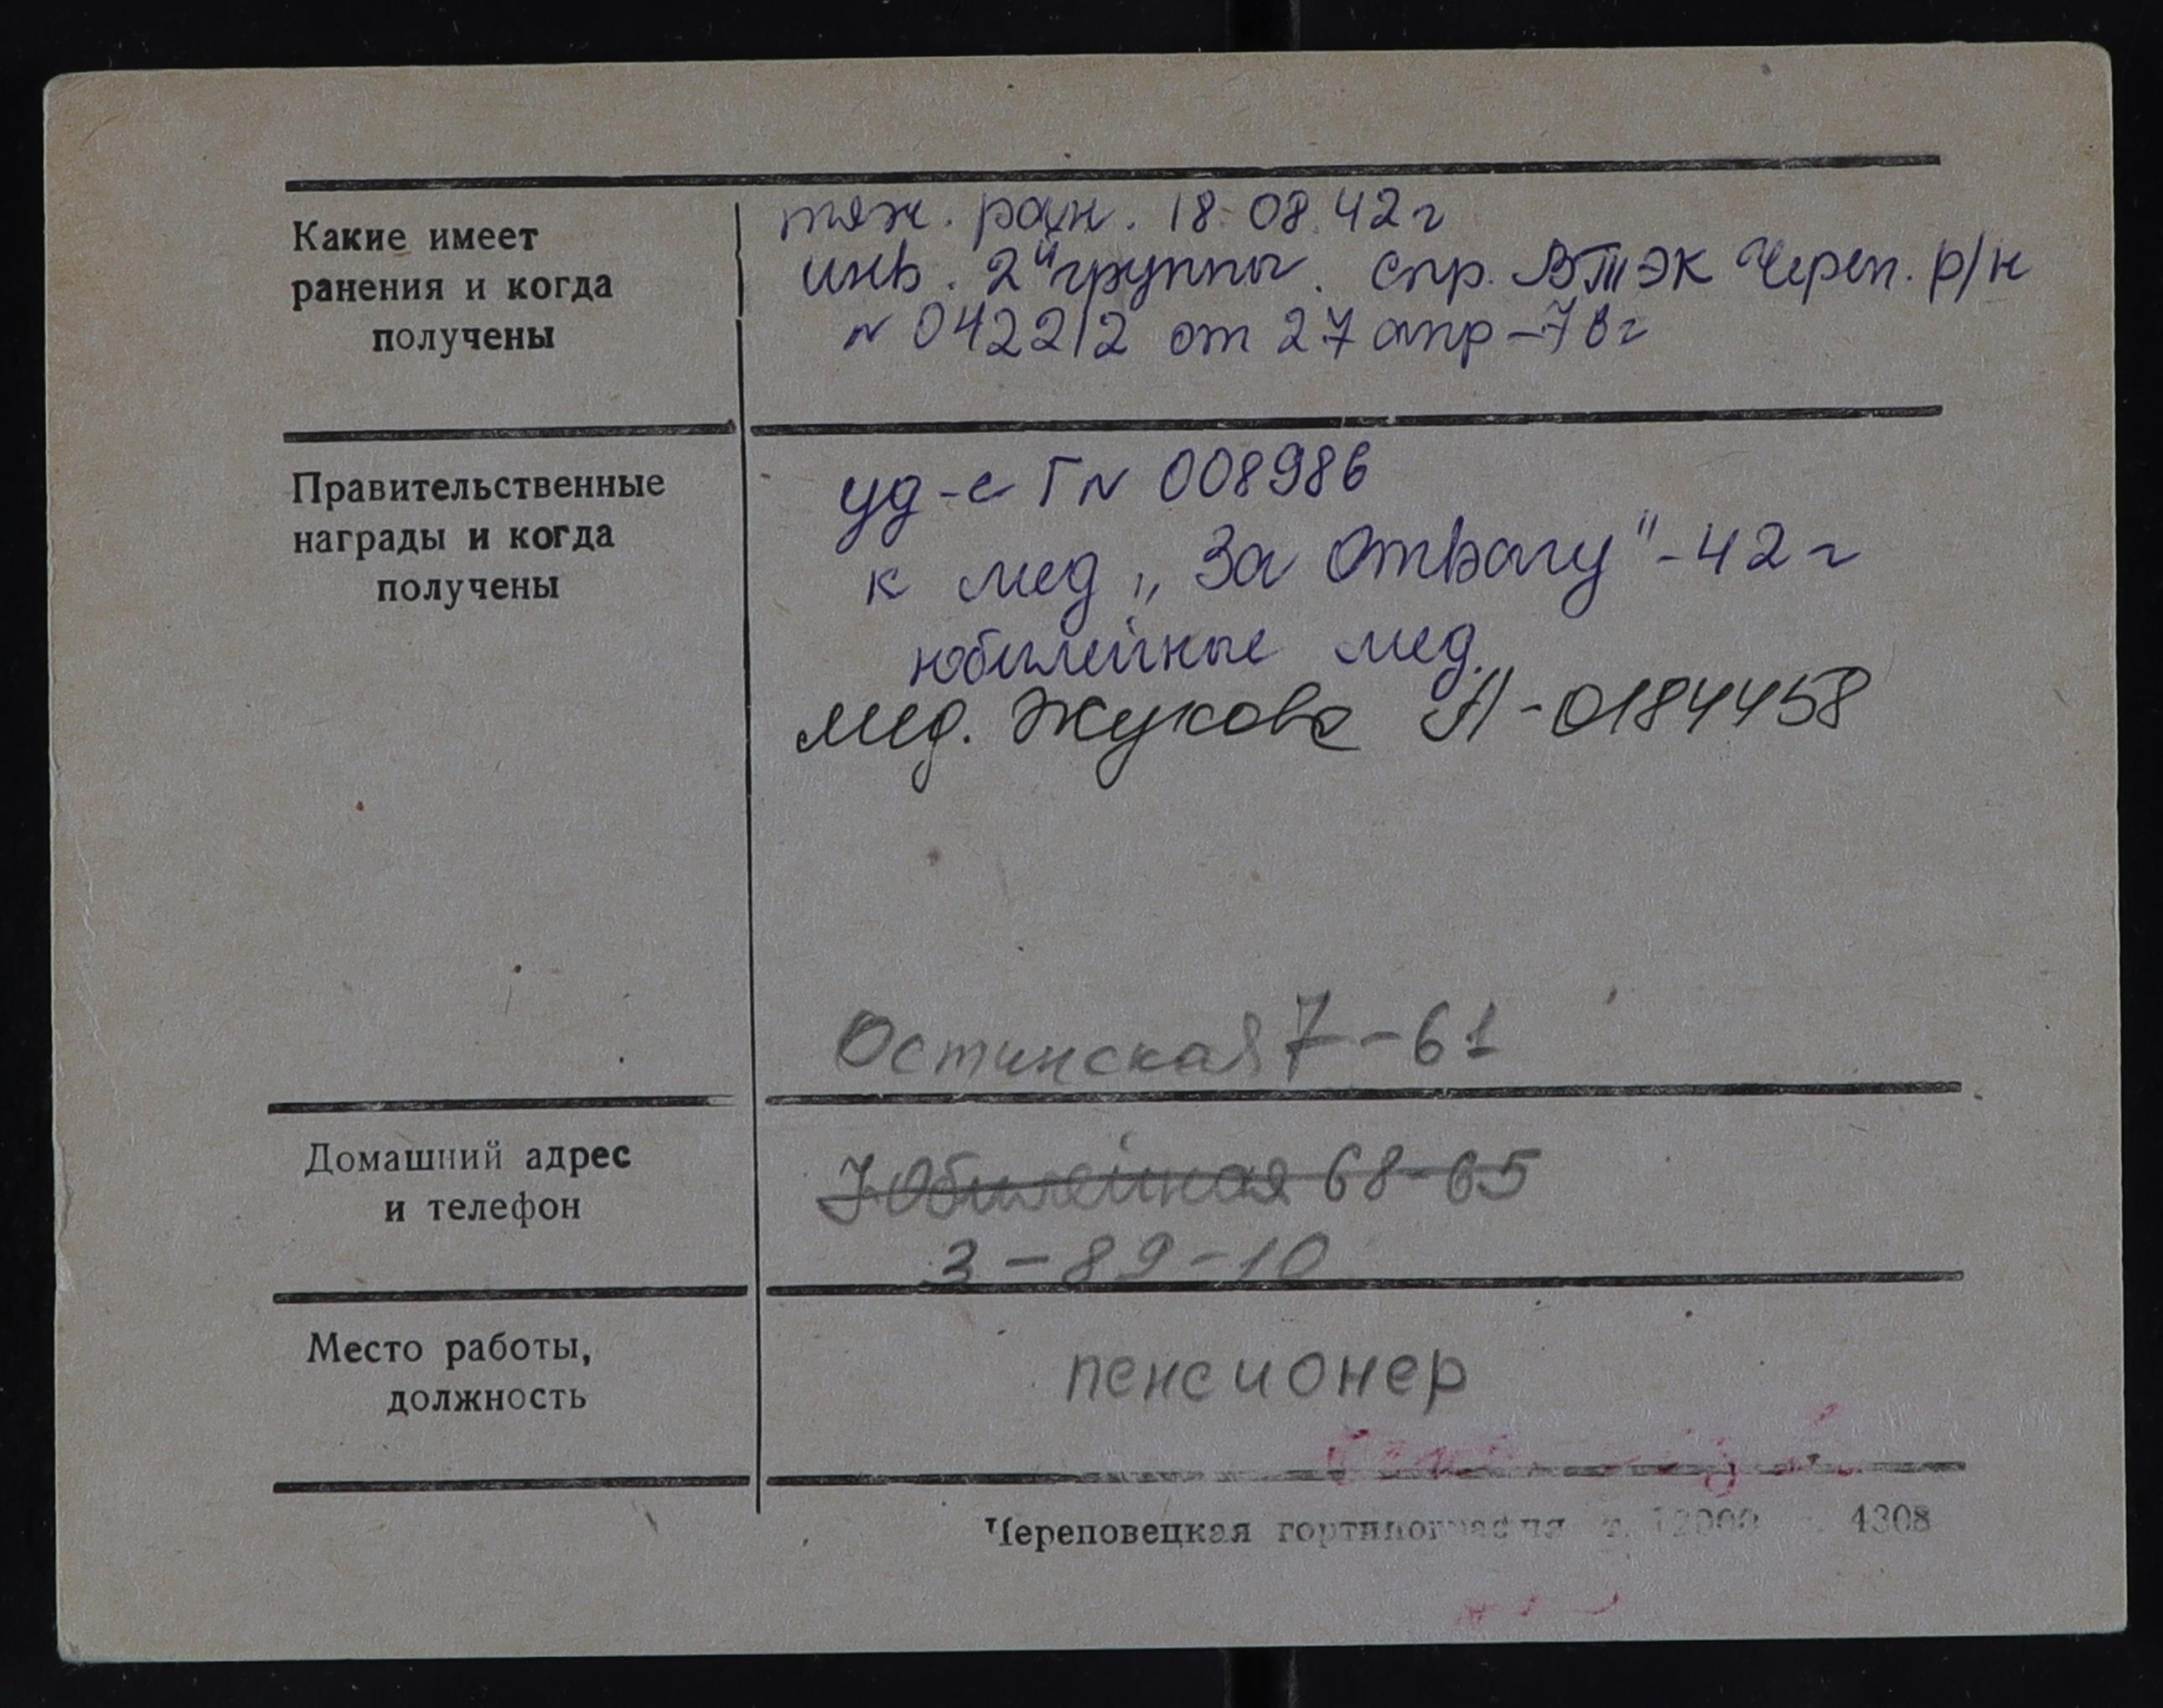 Какие имеет
ранения и когда
получены
тяж. ран. 18.08.42 г
инв. 2й группы. спр. ВТЭК Череп. р/н
N 042212 от 27 апр - 78 г
Правительственные
награды и когда
получены
уд-е Г N 008986
к мед „За Отвагу" - 42 г
юбилейные мед.
мед. Жукова А-0184458
Остинская 7-61
Домашний адрес
и телефон
Юбилейная 68-65
3-89-10
Место работы,
должность
пенсионер
Череповецкая гортипография т. 12000 4308